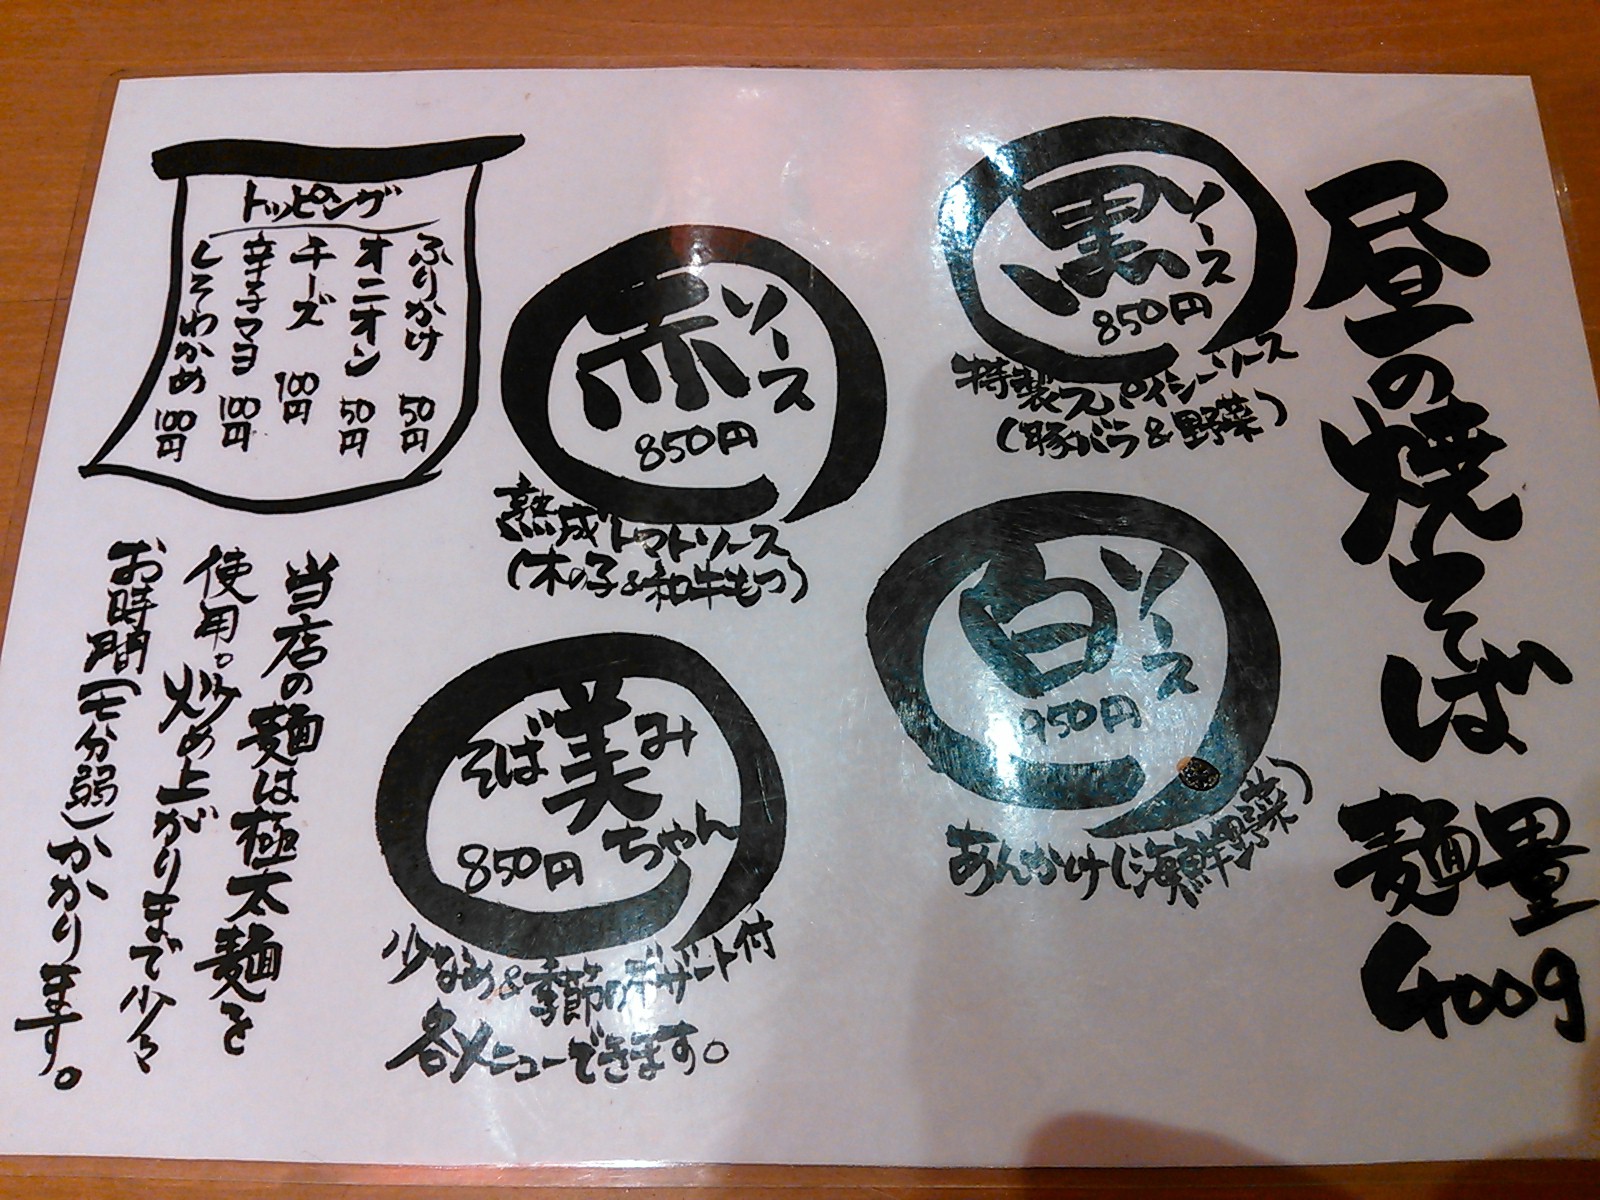 昼の焼そば 麺量400g
黒ソース
850円
特製スパイシーソース
(豚バラ&野菜)
白ソース
950円
あんかけ(海鮮野菜)
赤ソース
850円
熟成トマトソース
(木の子&和牛もつ)
そば美みちゃん
850円
少なめ&季節のデザート付
各メニューできます。
トッピング
ふりかけ 50円
オニオン 50円
チーズ 100円
辛子マヨ 100円
しそわかめ 100円
当店の麺は極太麺を
使用。炒め上がりまで少々
お時間(七分弱)かかります。